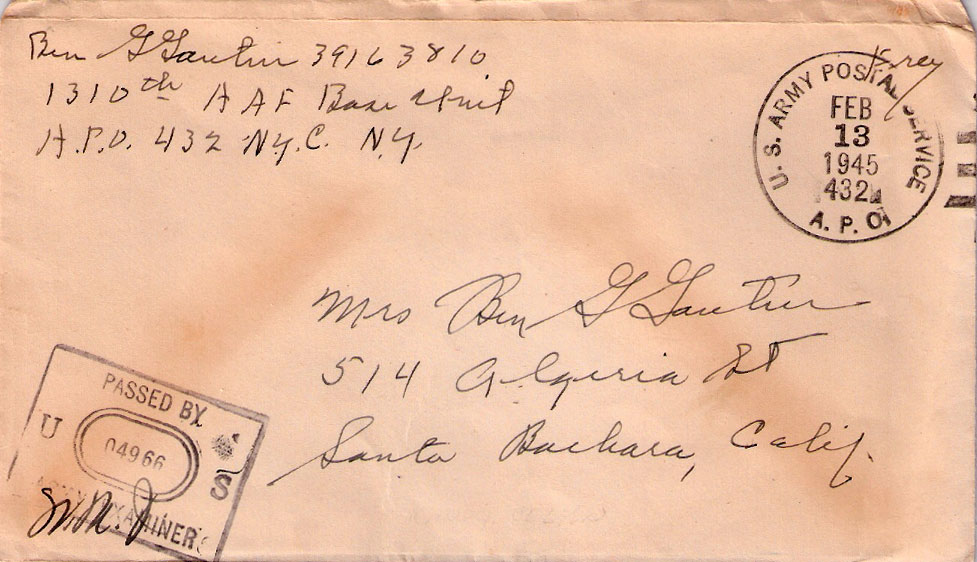 Ben G Gautier 39163810
1310th AAF Base Unit
A.P.O. 432 N.Y.C. N.Y.
Free
U. S. ARMY POSTAL SERVICE
FEB
13
1945
432
A. P. O.
Mrs Ben G Gautier
514 Algeria St
Santa Barbara, Calif.
PASSED BY
U 04966 S
ARMY EXAMINER